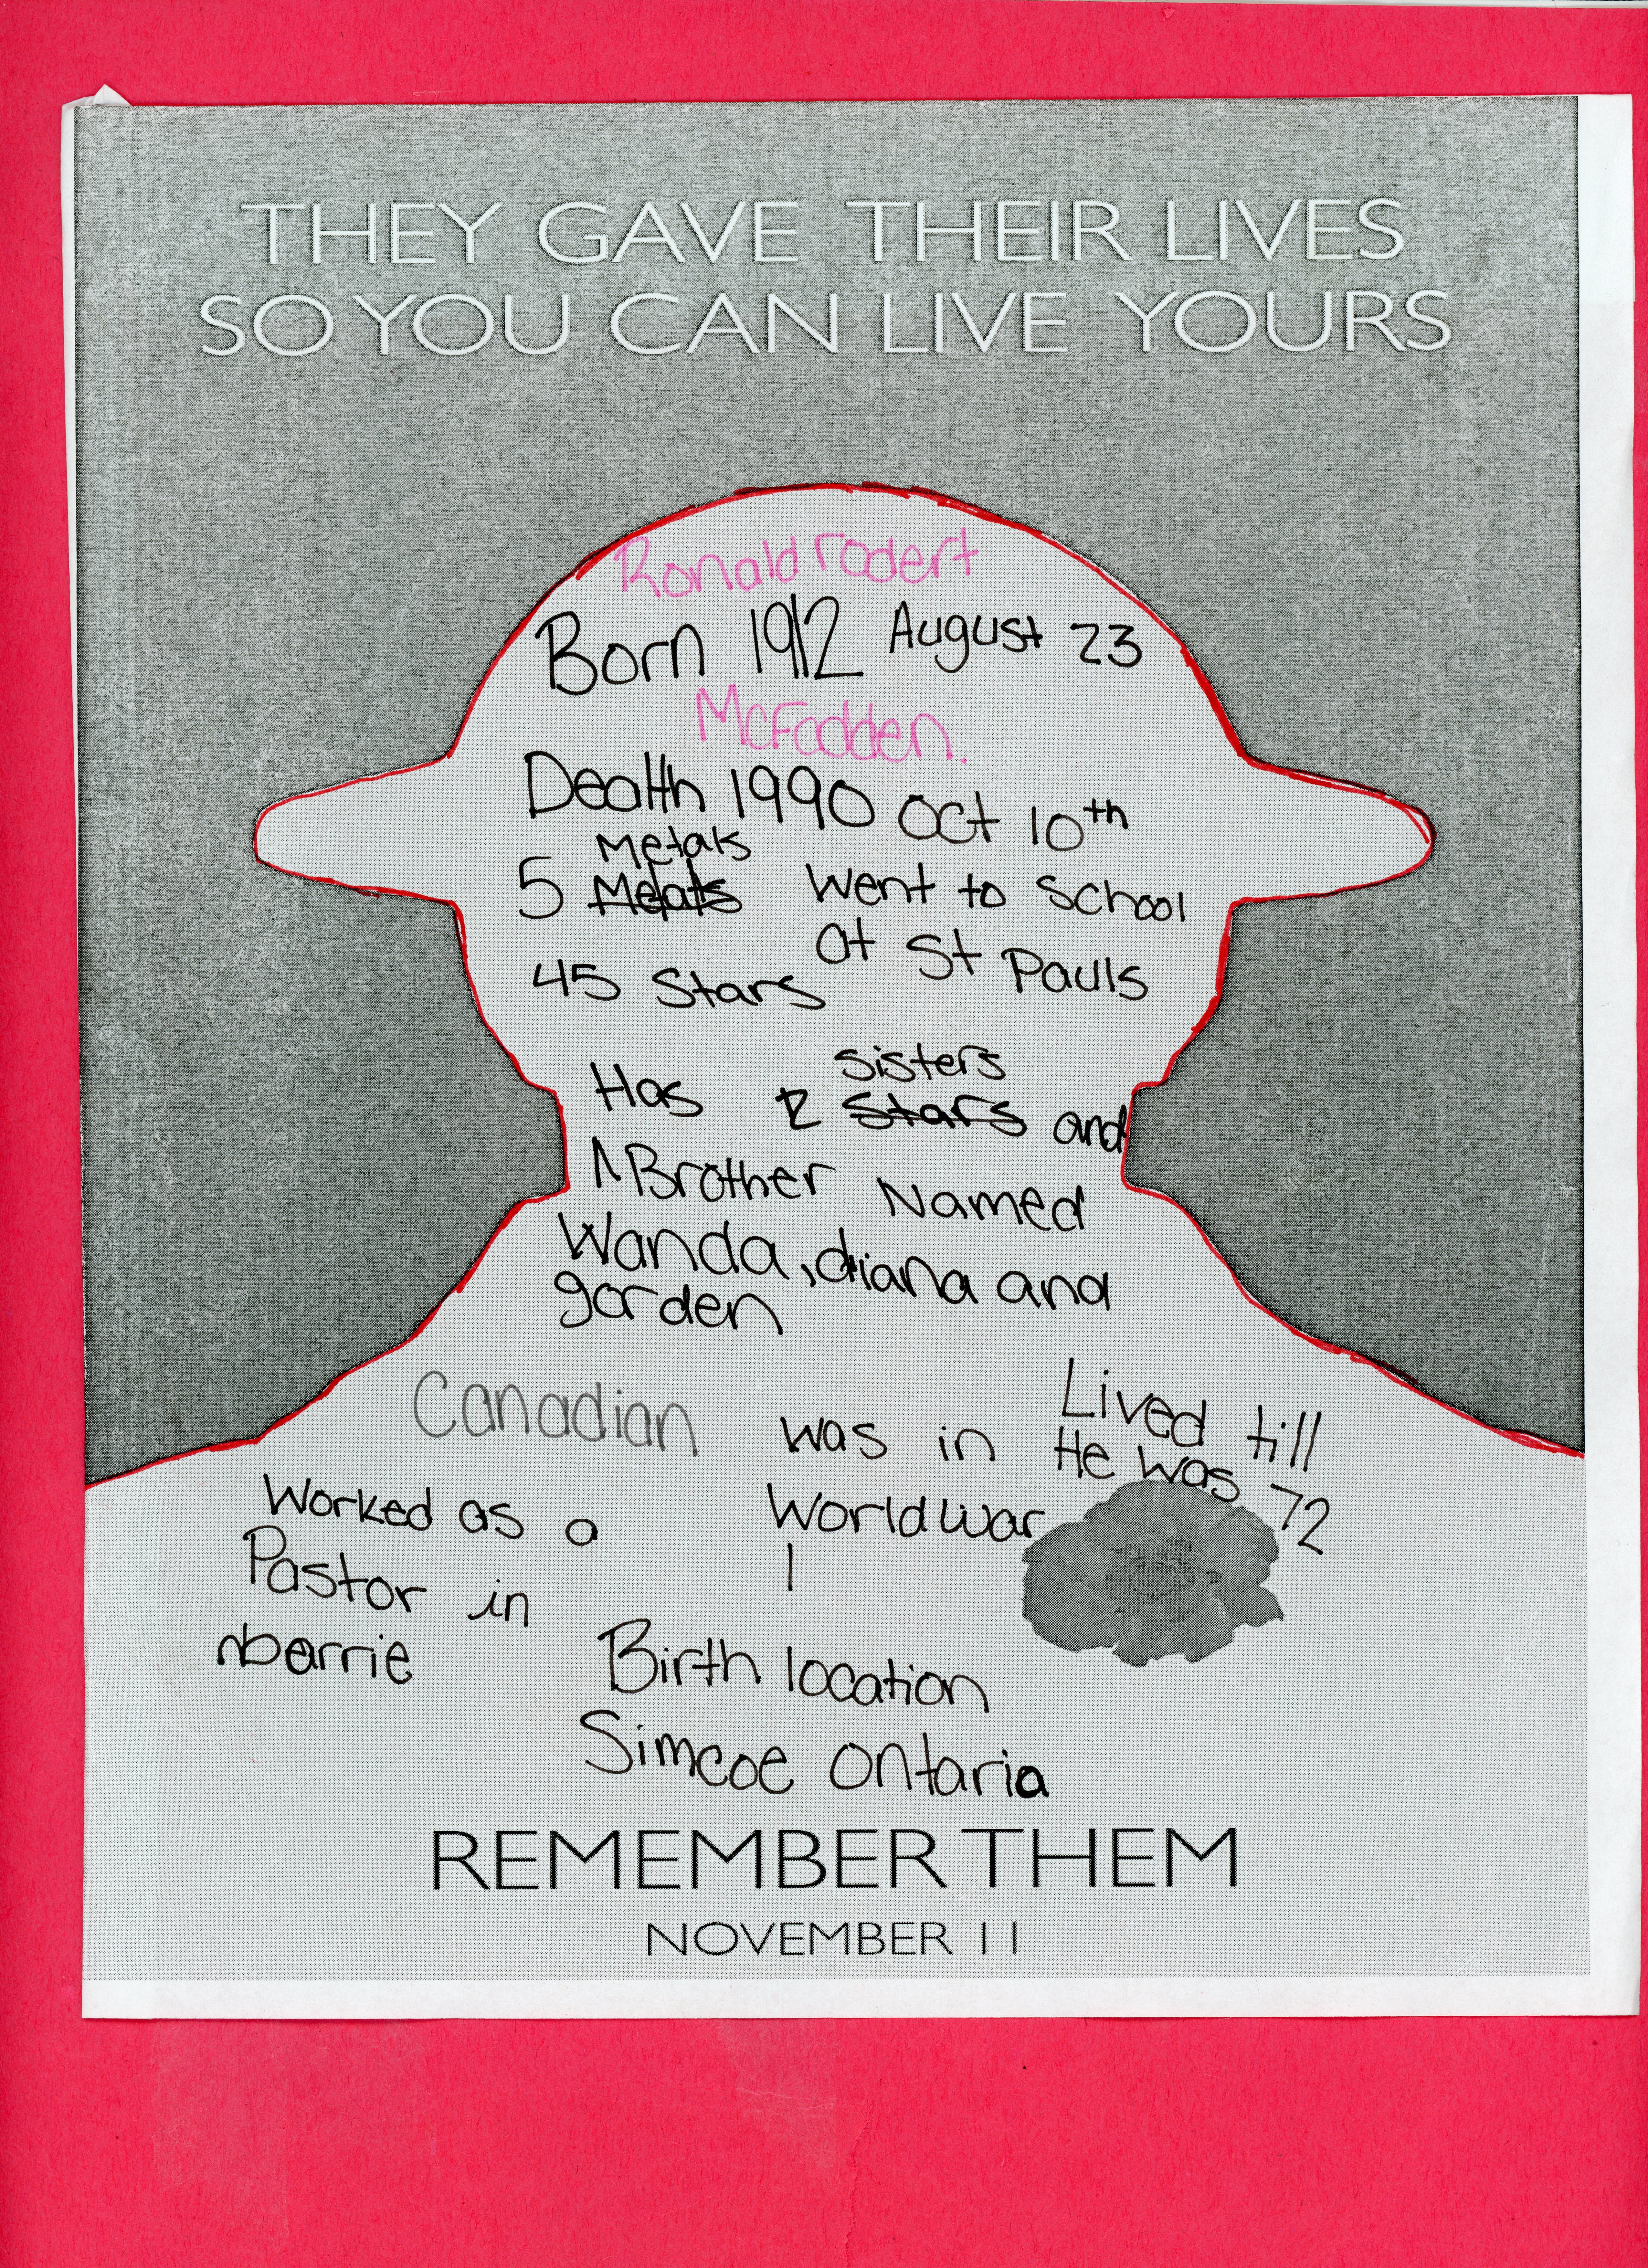 THEY GAVE THEIR LIVES
SO YOU CAN LIVE YOURS
Ronald rodert
Born 1912 August 23
McFadden.
Death 1990 Oct 10th
Metals
5 Meats went to school
at St Pauls
45 Stars
sisters
Has 2 Stars and
1 Brother Named
Wanda, diana and
gorden
Canadian
Lived till
He was 72
was in
World War
1
Worked as a
Pastor in
barrie
Birth location
Simcoe Ontaria
REMEMBER THEM
NOVEMBER 11